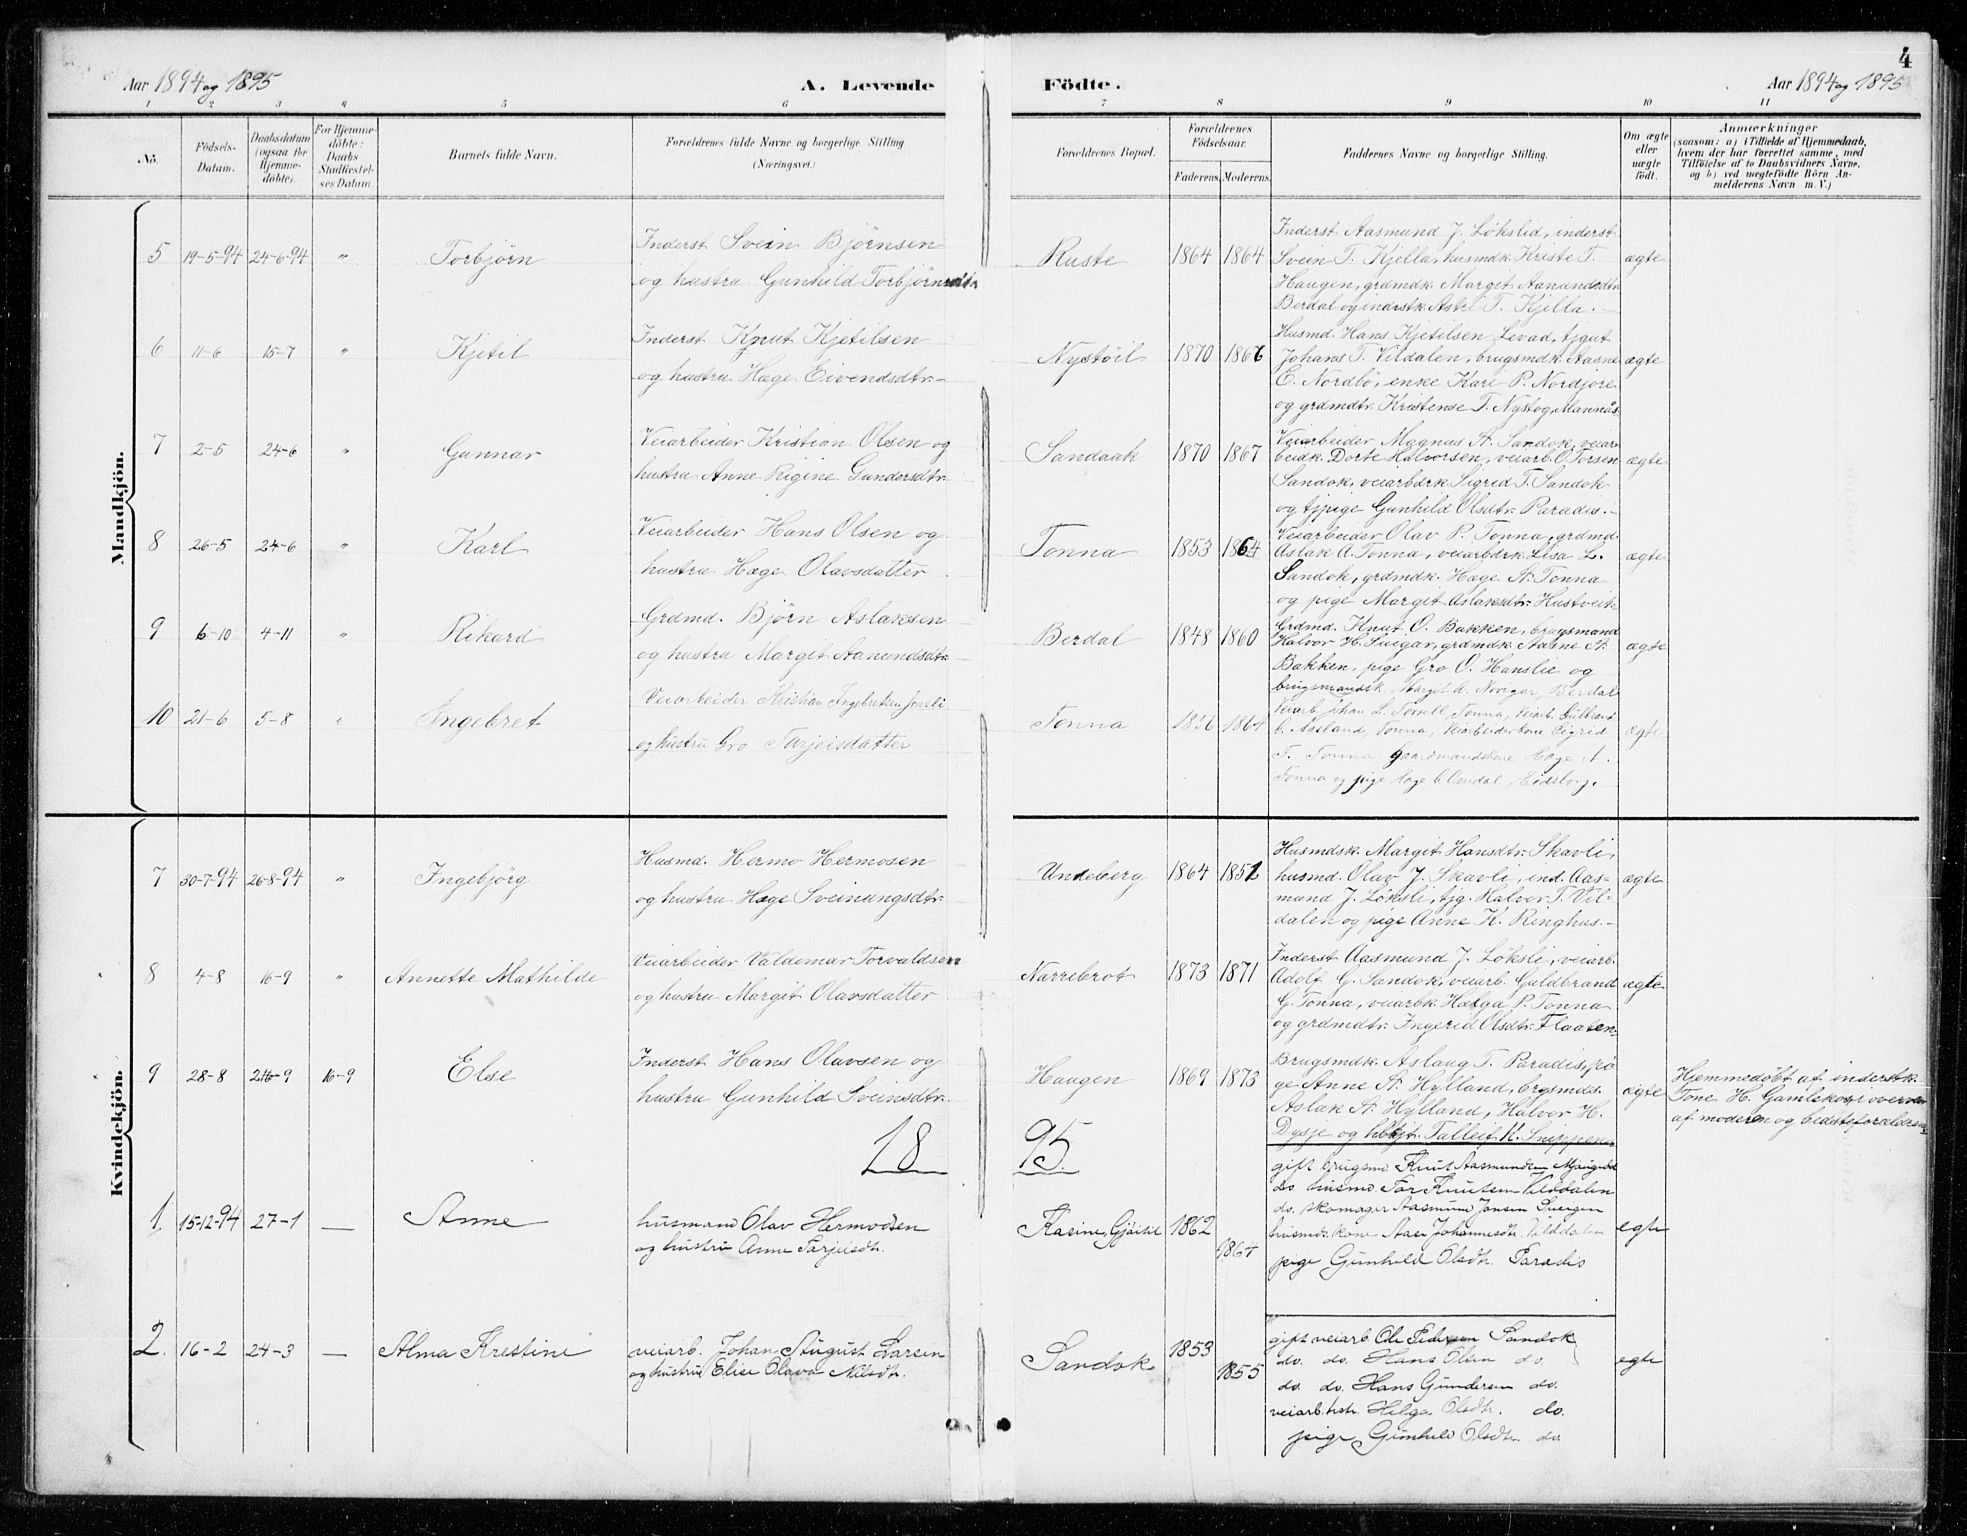 4
Aar 1894 og 1895
A. Levende
Födte.
Aar 1894 og 1895
1 2 3 4 5 6 7 8 9 10 11
No.
Födsels-
Datum.
Daabsdatum
(ogsaa for
Hjemme-
döbte).
For Hjemme-
döbte:
Daabs
Stadfæstel-
ses Datum
Barnets fulde Navn.
Forældrenes fulde Navne og borgerlige Stilling
(Næringsvei.)
Forældrenes Bopæl.
Forældrenes
Födselsaar.
Faderens. Moderens.
Faddernes Navne og borgerlige Stilling.
Om ægte
eller
uægte
födt.
Anmærkninger
(saasom: a) i Tilfælde af Hjemmedaab,
hvem der har forrettet samme, med
Tilföielse af to Daabsvidners Navne,
og b) ved uægtefödte Börn An-
melderens Navn m. V.)
Mandkjön.
5 19-5-94 24-6-94 " Torbjörn
Inderst Svein Bjørnsen
og hustru Gunhild Torbjörnsdtr.
Ruste 1864 1864
Inderst Aasmund J. Løkslid, inderst
Svein T. Kjella, husmdk Kriste T.
Haugen, grdmdk. Margit Aanundsdtr.
Berdal og inderstk Astri T. Kjella.-
ægte
6 11-6 15-7 " Kjetil
Inderst Knut Kjetilsen
og hustru Hæge Eivendsdtr.-
Nystöil 1870 1866
Husmd. Hans Kjetilsen Levad, tjgut
Johans T. Vildalen, brugsmdk. Aasne
E. Nordbö, enke Kari P. Nordjore
og grdmdtr. Kristense T. Nystog, Mannås.
ægte
7 2-5 24-6 " Gunnar
Veiarbeider Kristian Olsen og
hustru Anne Rigine Gundersdtr.
Sandaak 1870 1867
Veiarbeider Magnus A. Sandok, veiar-
beidk. Dorte Halvorsen, veiarb. O. Torsen
Sandok, veiarbdrk Sigrid T. Sandok
og tjpige Gunhild Olsdtr. Paradis.-
ægte
8 26-5 24-6 " Karl
Veiarbeider Hans Olsen og
hustru Hæge Olavsdatter
Tonna 1853 1864
Veiarbeider Olav P. Tonna, grdmd.
Aslak A. Tonna, veiarbdrk. Lisa L.
Sandok, grdmdk. Hæge A. Tonna
og pige Margit Aslaksdtr. Hustveit.
ægte
9 6-10 4-11 " Rikard
Grdmd. Björn Aslaksen
og hustru Margit Aanundsdtr.
Berdal 1848 1860
Grdmd. Knut O. Bakken, brugsmand
Halvor H. Suigar, grdmdk Aasne A.
Bakken, pige Gro O. Hanslie og
brugsmandsk. Margit A. Norigar, Berdal
ægte
10 21-6 5-8 " Ingebret
Veiarbeider Kristian Ingebretsen
og hustru Gro Tarjeisdatter
Tonna 1856 1864
Veiarb. Johan L. Torsell, Tonna, veiarb. Gulbrant
G. Aasland, Tonna, Veiarbeiderkone Sigrid
T. Tonna, Gaardmandskone Hæge A.
Tonna og pige Hæge G. Omdal, Eidsborg.
ægte
Kvindekjön.
7 30-7-94 26-8-94 " Ingebjörg
Husmd. Hermo Hermosen
og hustru Hæge Sveinungsdtr.
Undeberg 1864 1851
Husmdsk. Margit Hansdtr. Skavli,
husmd. Olav J. Skavli, ind. Aas-
mund J. Løksli, tjg. Halvor T. Vil-
dalen og pige Anne K. Ringhus.-
ægte
8 4-8 16-9 " Annette Mathilde
Veiarbeider Valdemar Torvaldsen
og hustru Margit Olavsdatter
Narrebrot 1873 1871
Inderst Aasmund J. Løksli, veiarb.
Adolf G. Sandok, veiarb. Guldbrand
G. Tonna, veiarbk. Hælga P. Tonna
og grdmdtr. Ingerid Olsdtr. Flaaten.
ægte
9 28-8 16-9 16-9 Else
Inderst Hans Olavsen og
hustru Gunhild Sveinsdtr.
Haugen 1869 1873
Brugsmdk. Aslaug T. Paradis, pi-
ge Anne A. Hylland, brgsmds.
Aslak A. Hylland, Halvor H.
Dysje og Talleif K. Snippen
ægte
Hjemmedøbt af inderstk.
Tone H. overvær
af moderen og bedsteforældrene
18 95
1. 15-12-94 27-1 — Anne
husmand Olav Hermodsen
og hustru Anne Tarjeisdtr.
Kasine, Gjøitil 1862 1864
gift brugsmd Knut Aasmundsen
do. husmd. Tor Knutsen Vilddalen
do. skomager Aasmund Jansen
husmdskone Aase Johannesdtr. Vilddalen
pige Gunhild Olsdtr. Paradis
egte
2. 16-2 24-3 — Alma Krestine
veiarb. Johan August Larsen
og hustru Elise Olava Nilsdtr.
Sandok 1853 1855
gift veiarb Ole Pedersen Sandok
do. do. Hans Olsen do.
do. do. Hans Gundersen do.
veiarb.hstr. Helga Olsdtr. do.
pige Gunhild Olsdtr. do.
egte